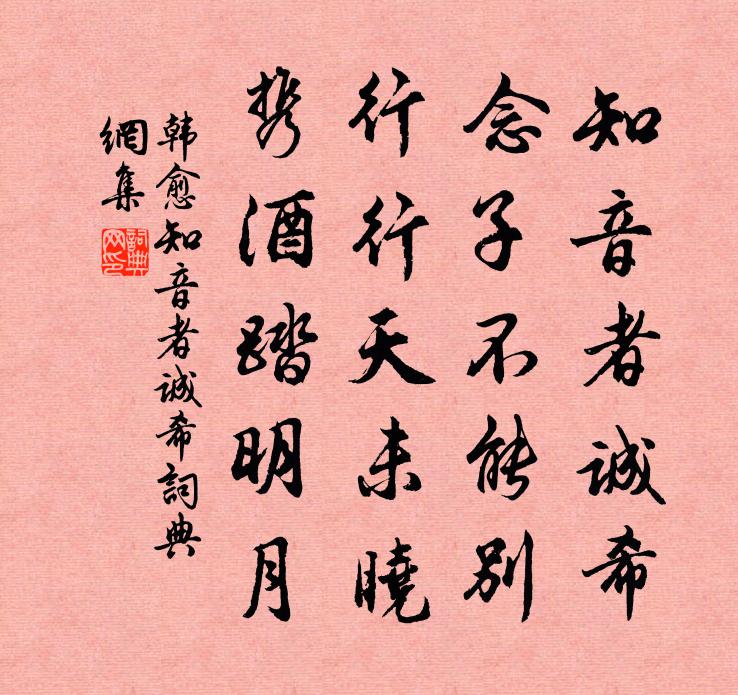 知音者诚希
念子不能别
行行天未曉
携酒踏明月
韩愈知音者诚希词典
網集
詞典網印